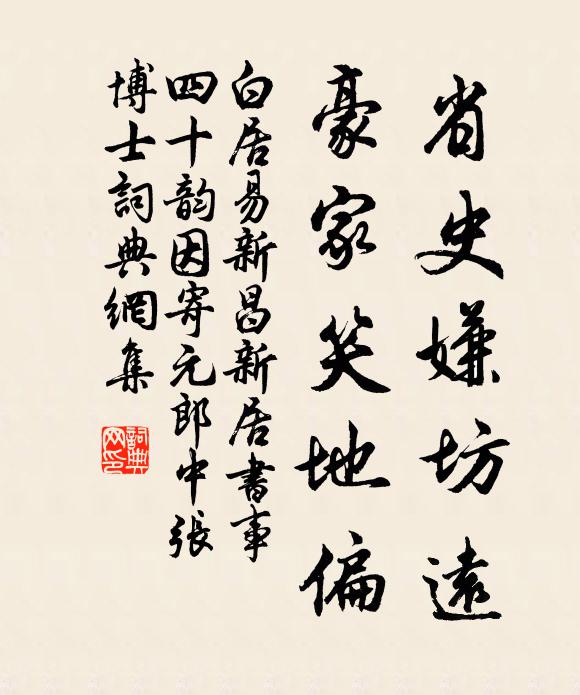 省史嫌坊遠
豪家笑地偏
白居易新昌新居書事
四十韵因寄元郎中張
博士詞典網集
詞典网印